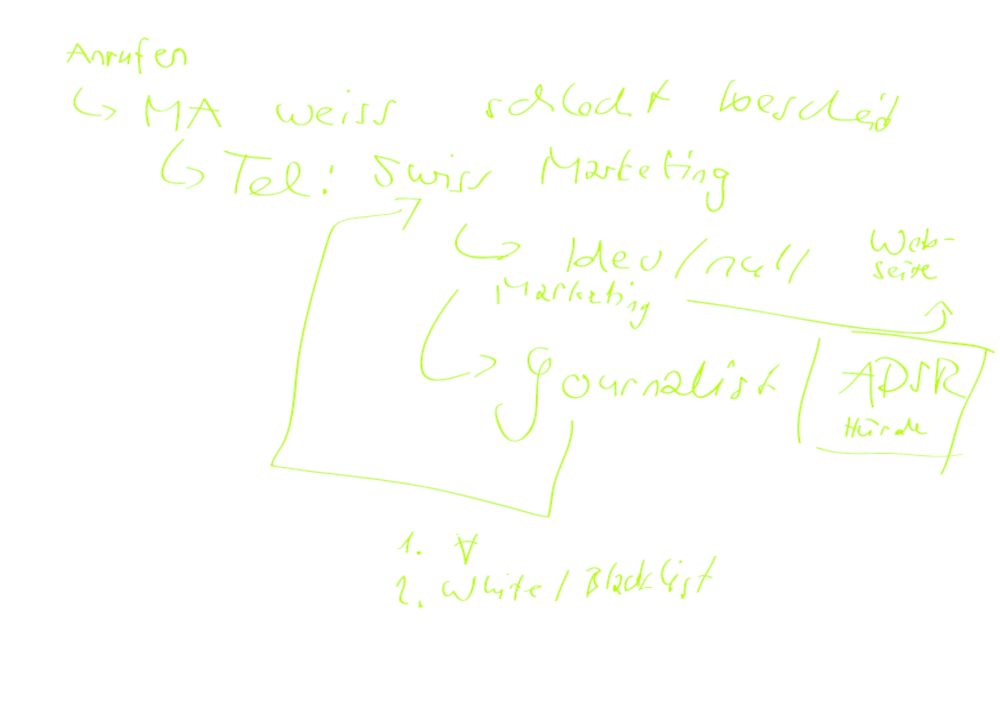 Anrufen
↳ MA weiss schlecht bescheid
↳ Tel: Swiss Marketing
↳ /dev/null
Marketing
Web-
seite
↳ Journalist
ADSR
Hürde
1. ∀
2. White/Blacklist